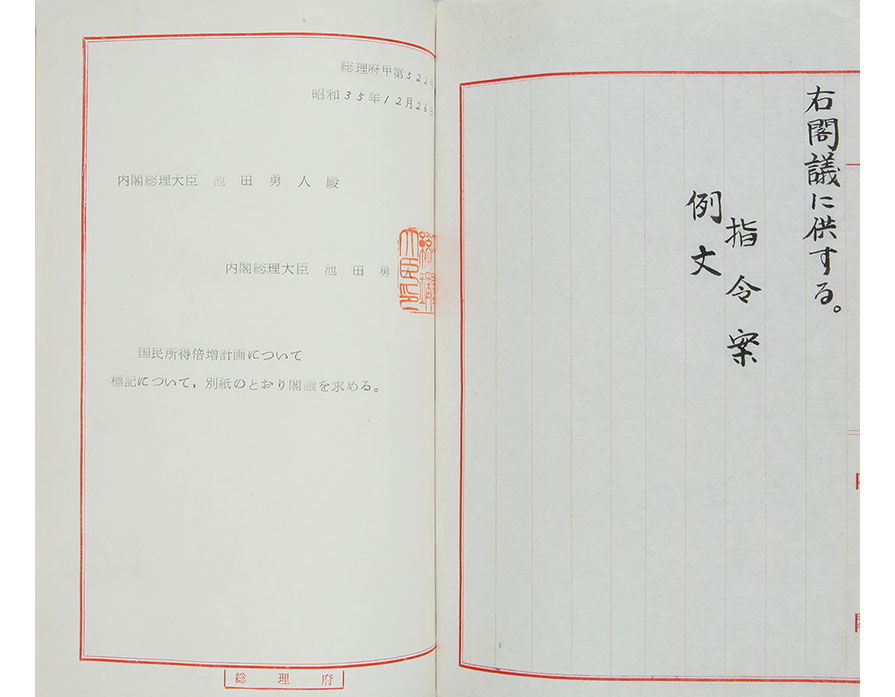 右閣議に供する。
指令案
例文
総理府甲第522
昭和35年12月26日
内閣総理大臣 池田勇人殿
内閣総理大臣 池田勇人
国民所得倍増計画について
標記について，別紙のとおり閣議を求める。
総理府